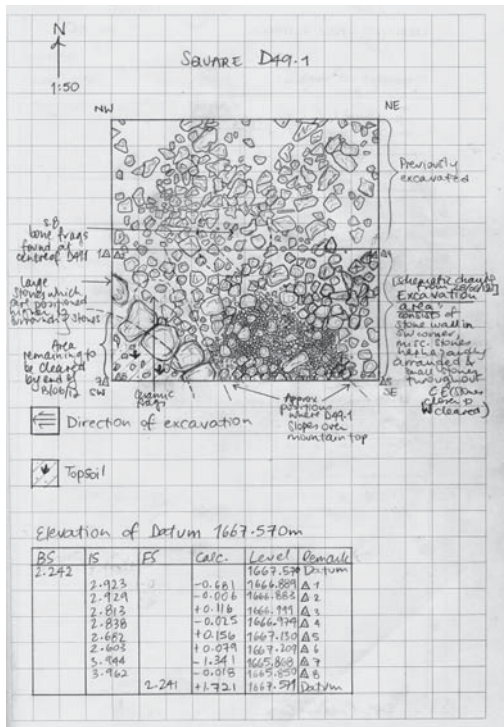 N
1:50
SQUARE D49.1
NW
NE
Previously
excavated
S.B
bone frags
found at
centre of D49.1
Large
stones which
are positioned
higher to
surround stones
Area
remaining to
be cleared
by end of
SW
ceramic
frags
Approx
positions
where D49.1
slopes over
mountain top
SE
Excavation
area
consists of
stone wall in
SW corner,
misc. stones
haphazardly
arranged &
small stones
throughout
closer to
W cleared)
Direction of excavation
Topsoil
Elevation of Datum 1667.570m
BS IS FS Calc. Level Remark
2.242 1667.570 Datum
2.923 -0.681 1666.889 Δ1
2.929 -0.006 1666.883 Δ2
2.813 +0.116 1666.999 Δ3
2.838 -0.025 1666.974 Δ4
2.682 +0.156 1667.130 Δ5
2.603 +0.079 1667.209 Δ6
3.944 -1.341 1665.868 Δ7
3.962 -0.018 1665.850 Δ8
2.241 +1.721 1667.571 Datum